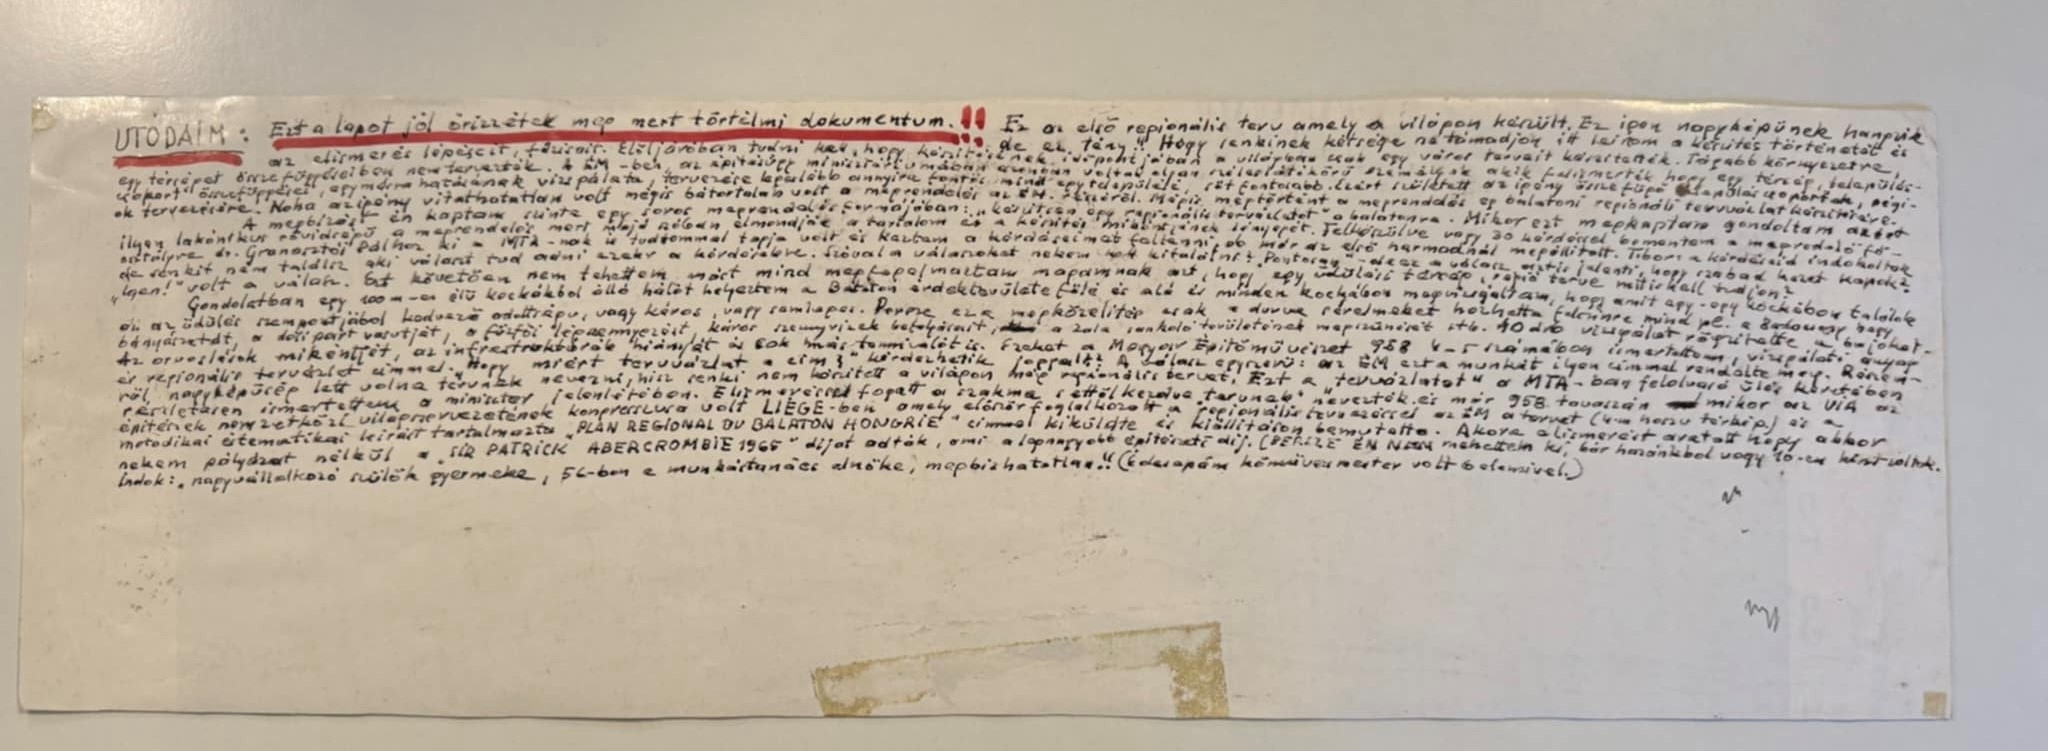 UTÓDAIM: Ezt a lapot jól őrizzétek meg mert törtélmi dokumentum.!! Ez az első regionális terv amely a világon készült. Ez igen nagyképűnek hangzik
de ez tény!! Hogy senkinek kétsége ne támadjon itt leírom a készítés történetét és
az elismerés lépéseit, fázisait. Elöljáróban tudni kell, hogy készítésének időpontjában a világban csak egy város terveit készítették. Tágabb környezetre,
egy térséget összefüggéseiben nem terveztek. A ÉM-ben, az építésügyi minisztériumban azonban voltak olyan széleslátókörű személyek akik felismerték hogy egy térség, település-
csoport összefüggései, egymásra hatásának vizsgálata, tervezése legalább annyira fontos mint egy településé, sőt fontosabb. Ezért született az igény összefüggő településcsoportok, régi-
ók tervezésére. Noha az igény vitathatatlan volt mégis bátortalan volt a megrendelés az ÉM. részéről. Mégis megtörtént a megrendelés egy balatoni regionális tervvázlat készítésére.
A megbízást én kaptam szinte egy soros megrendelés formájában: „készítsen egy regionális tervvázlatot" a balatonra. Mikor ezt megkaptam gondoltam azért
ilyen lakónikus rövidségű a megrendelés mert majd szóban elmondják a tartalom és a készítés mikéntjének lényegét. Felkészülve vagy 30 kérdéssel bementem a megrendelő fő-
osztályra dr. Granasztói Pálhoz ki a MTA-nak is tudtommal tagja volt és kezdtem a kérdéseimet feltenni, ő már az első harmadnál megállított. Tibor: a kérdéseid indokoltak
de senkit nem találsz aki választ tud adni ezekre a kérdésekre. Szóval a válaszokat nekem kell kitalálni? Pontosan"- de ez a válasz azt is jelenti, hogy szabad kezet kapok?
„Igen!" volt a válasz. Ezt követően nem tehettem mást mind megfogalmaztam magamnak azt, hogy egy üdülési térség, régió terve mit is kell tudjon?
Gondolatban egy 100m-es élű kockákból álló hálót helyeztem a Balaton érdekterülete fölé és alá és minden kockában megvizsgáltam, hogy amit egy-egy kockában találok
az az üdülés szempontjából kedvező adottságu, vagy káros, vagy semleges. Persze ez a megközelítés csak a durva sérelmeket hozhatta felszínre mind pl. a Badacsony hegy
bányászatát, a déli part vasutját, a fűzfői légszennyezést, káros szennyvizek befolyásait, a zala iszapoló területének megszűnését stb. 40 db vizsgálat rögzítette a bajokat.
Az orvoslások mikéntjét, az infrastruktúrák hiányát és sok más tennivalót is. Ezeket a Magyar Építőművészet 958 4-5 számában ismertettem, vizsgálati anyag
és regionális tervezlet címmel. „Hogy miért tervvázlat a cím?" kérdezhetik joggal? A válasz egyszerű: az ÉM ezt a munkát ilyen címmel rendelte meg. Részem-
ről nagyképűség lett volna tervnek nevezni, hisz senki nem készített a világon még regionális tervet. Ezt a „tervvázlatot" a MTA-ban felolvasó ülés keretében
részletesen ismertettem a miniszter jelenlétében. Elismeréssel fogadta a szakma s ettől kezdve „tervnek" nevezték és már 958. tavaszán mikor az UIA az
építészek nemzetközi világszervezetének kongresszusa volt LIÈGE-ben amely először foglalkozott a regionális tervezéssel az ÉM a tervet (4-m hosszu térkép) és a
metodikai és tematikai leírást tartalmazta „PLAN REGIONAL DU BALATON HONGRIE" címmel kiküldte és kiállításon bemutatta. Akora elismerést aratott hogy abból
nekem pályázat nélkül a „SIR PATRICK ABERCROMBIE 1965" díjat adták, ami a legnagyobb építészeti díj. (PERSZE ÉN NEM mehettem ki, bár hazánkból vagy 10-en kint voltak.
Indok: „nagyvállalkozó szülők gyermeke, 56-ban a munkástanács elnöke, megbízhatatlan". (édesapám kőművesmester volt 6 elemivel.)